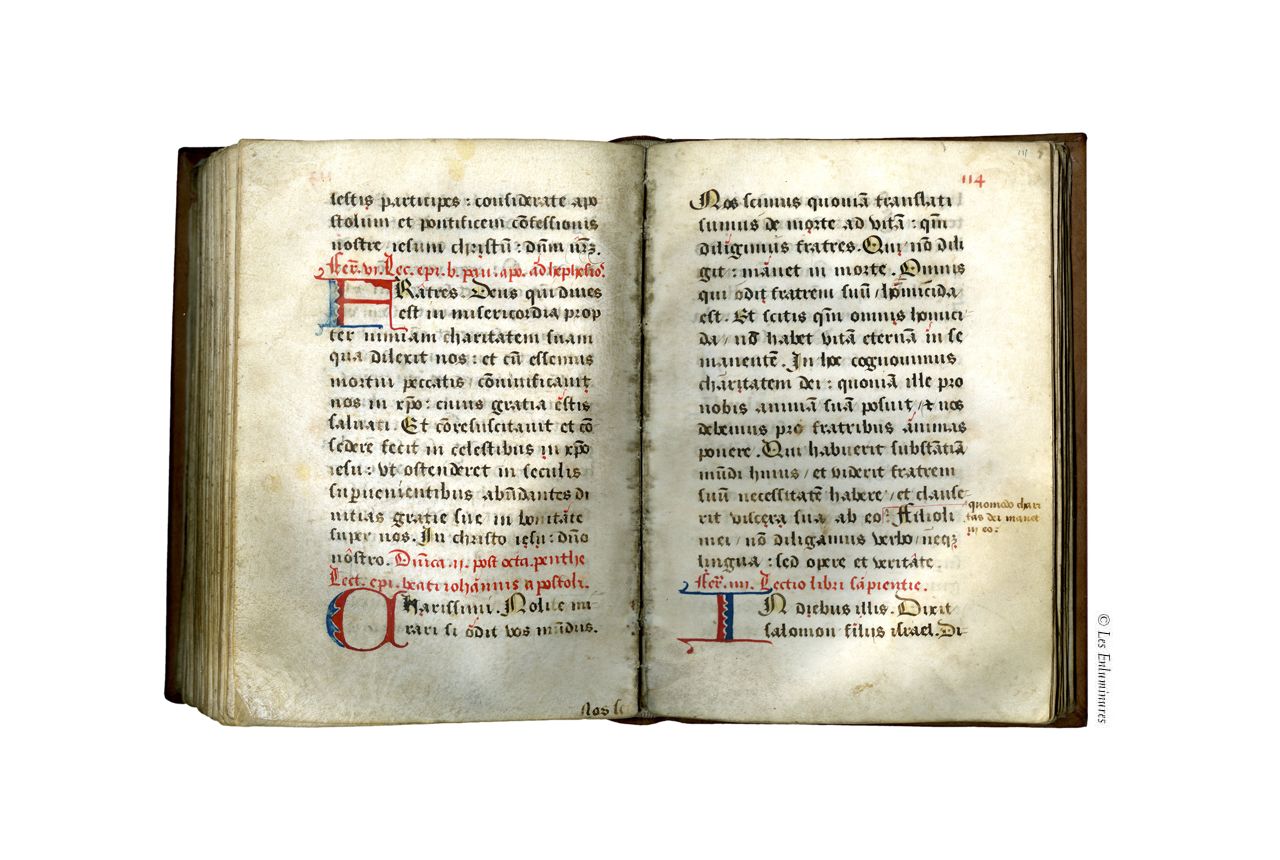 lestis participes : considerate apo
stolum et pontificem cõfessionis
nostre iesum christũ : dñm nr̃ȝ.
Fer̃. vi. Lec. epi. b. pau. apo. ad hepheſioˢ
FRatres. Deus qui diues
est in misericordia prop
ter nimiam charitatem suam
qua dilexit nos : et cũ essemus
mortui peccatis / cõuiuificauit
nos in xp̃o : cuius gratia estis
saluati. Et cõresuscitauit et cõ
sedere fecit in celestibus in xp̃o
iesu : vt ostenderet in seculis
superuenientibus abũdantes di
uitias gratie sue in bonitate
super nos. In christo iesu : dño
nostro. Dñica. ij. post octa. penthe
Lect. epi. beati iohãnnis apostoli.
CHarissimi. Nolite mi
rari si odit vos mũdus.
Nos sc
114
Nos scimus quoniã translati
sumus de morte ad vitã : qm̃
diligimus fratres. Qui nõ dili
git : manet in morte. Omnis
qui odit fratrem suũ / homicida
est. Et scitis qm̃ omnis homici
da / nõ habet vitã eternã in se
manentẽ. In hoc cognouimus
charitatem dei : quoniã ille pro
nobis animã suã posuit / & nos
debemus pro fratribus animas
ponere. Qui habuerit substãtiã
mũdi huius / et viderit fratrem
suũ necessitatẽ habere / et clause-
rit viscera sua ab eo : Filioli
quomodo chari
tas dei manet
in eo.
mei / nõ diligamus verbo / neqȝ
lingua : sed opere et veritate.
Fer̃. iiij. Lectio libri sapientie.
IN diebus illis. Dixit
salomon filius israel. Di-
© Les Enluminures